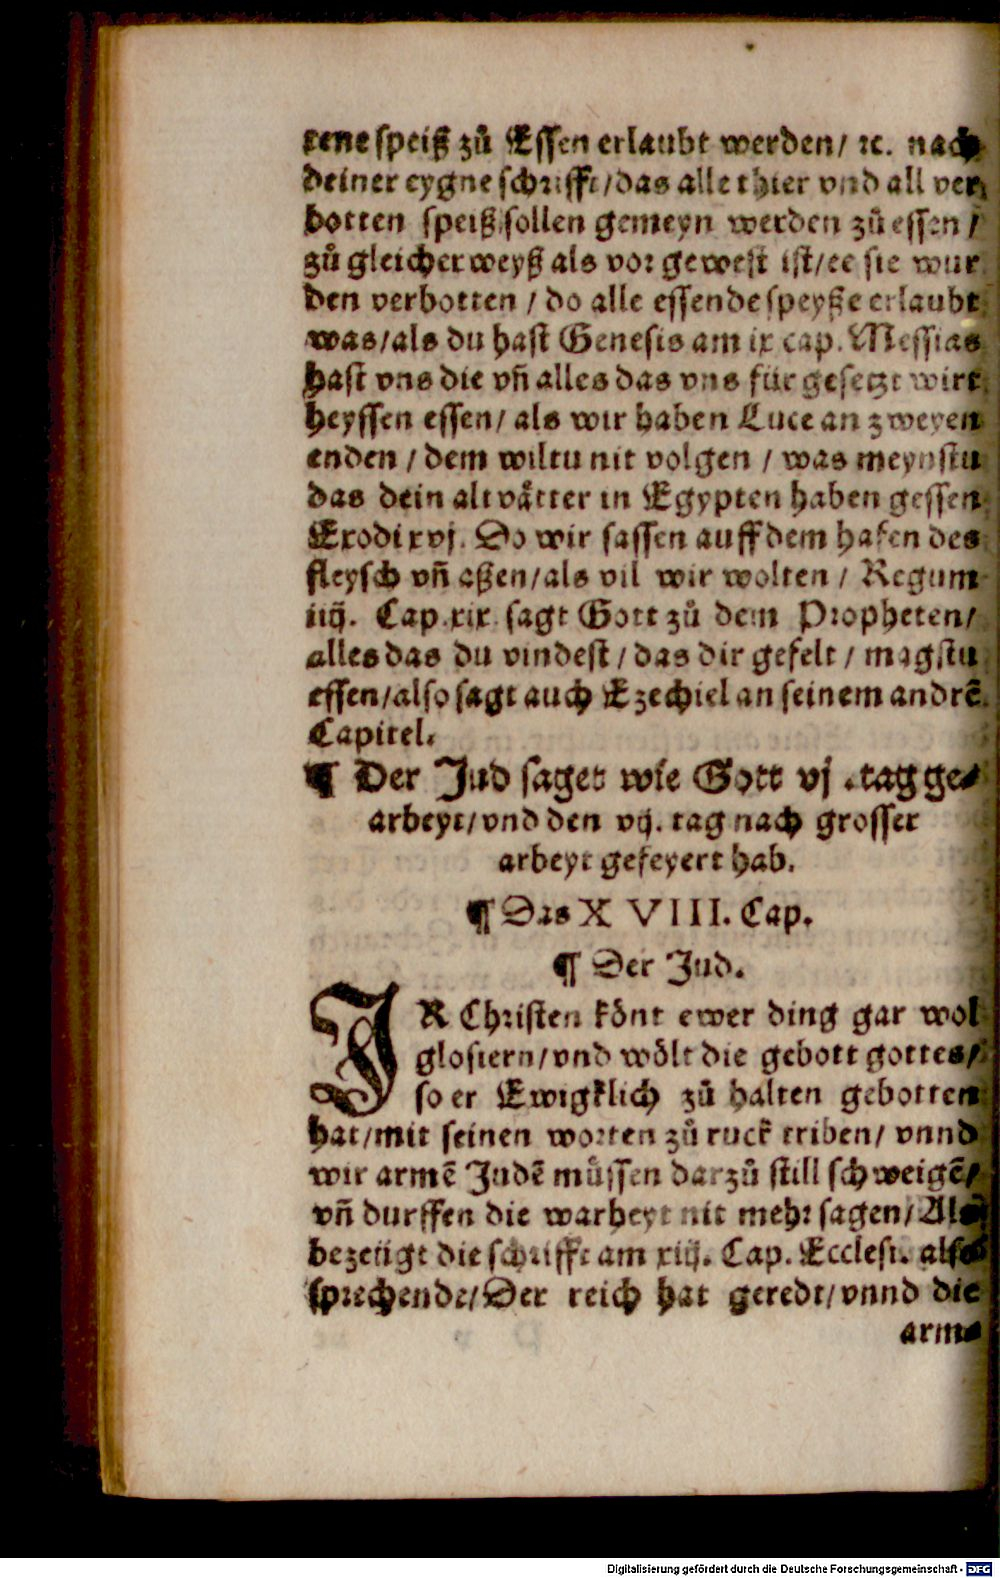 tene speiß zů Essen erlaubt werden/ ꝛc. nach
deiner eygne schrifft/das alle thier vnd all ver
botten speiß sollen gemeyn werden zů essen /
zů gleicher weyß als vor gewest ist/ee sie wur
den verbotten / do alle essende speyße erlaubt
was/als du hast Genesis am ix cap. Messias
hast vns die vn̄ alles das vns für gesetzt wirt
heyssen essen/ als wir haben Luce an zweyen
enden / dem wiltu nit volgen / was meynstu
das dein alt våtter in Egypten haben gessen
Exodi xvj. Do wir sassen auff dem hafen des
fleysch vn̄ aßen/als vil wir wolten / Regum
iiij. Cap. xix. sagt Gott zů dem Propheten/
alles das du vindest / das dir gefelt / magstu
essen/also sagt auch Ezechiel an seinem andrē
Capitel.
¶ Der Jud saget wie Gott vj .tag ge⸗
arbeyt/vnd den vij. tag nach grosser
arbeyt gefeyert hab.
¶ Das XVIII. Cap.
¶ Der Jud.
JR Christen kȯnt ewer ding gar wol
glosiern/vnd wȯlt die gebott gottes/
so er Ewigklich zů halten gebotten
hat/mit seinen worten zů ruck triben/ vnnd
wir armē Judē müssen darzů still schweigē/
vn̄ durffen die warheyt nit mehr sagen/ Als
bezeügt die schrifft am xiij. Cap. Ecclesi. also
sprechende/Der reich hat geredt/vnnd die
arme
Digitalisierung gefördert durch die Deutsche Forschungsgemeinschaft - DFG